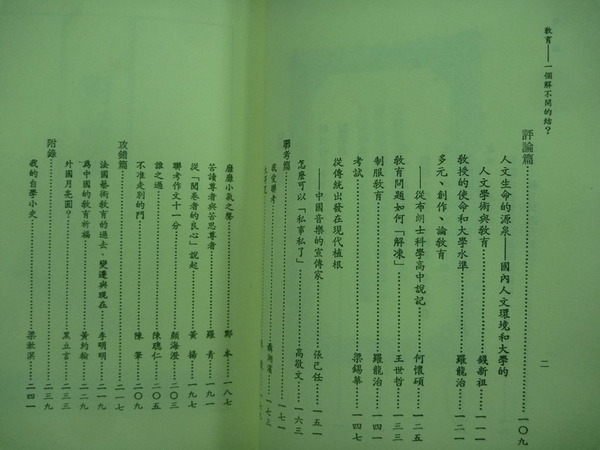 教育——一個解不開的結？
二
評論篇……一〇九
人文生命的源泉——國內人文環境和大學的
人文學術與教育……錢新祖 一一一
教授的使命和大學水準……羅龍治 一二一
多元、創作、論教育
——從布朗士科學高中說記……何懷碩 一二五
教育問題如何「解凍」……王世哲 一三三
制服教育……羅龍治 
考試……梁錫華 一四七
從傳統出發在現代植根
——中國音樂的宣傳家……張己任 一五一
怎麼可以「私事私了」……高敬文 一六三
聯考篇……一七一
我愛聯考……一七三
廳廳小氣之聲……鄭本 一八七
苦讀尊者與苦思尊者……羅青 一九一
從「閱卷者的良心」說起……黃揚 一九七
聯考作文十一分……顏海澄 二〇三
誰之過……陳瓊仁 二〇五
不准走別的門……陳肇 二一五
攻錯篇……二一七
法國藝術教育的過去、變遷與現在……李明明 二一九
為中國的教育祈福……黃約翰 二二九
外國月亮圓？……黑立言 二三三
附錄……二三九
我的自學小史……梁漱溟 二四一